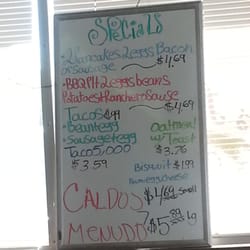 Specials
2 Pancakes 2 eggs Bacon
or Sausage $4.69
BBQ Plt 2 eggs beans
Potatoes + Ranchero Sauce
$4.69
Tacos 99
Bean + egg
Sausage + egg
Taco 5,000
$3.59
Oatmeal
w/ Toast
$3.75
Biscuit $1.99
egg cheese
CALDOS $4.69 Small
MENUDO 7 $5.99 Lg